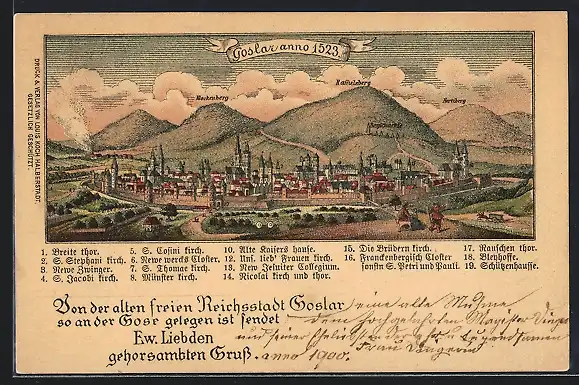 Goslar anno 1523.
Rammelsberg
Nordberg
DRUCK & VERLAG VON LOUIS KOCH HALBERSTADT.
GESETZLICH GESCHÜTZT.
1. Breite thor.
2. S. Stephani kirch.
3. Newe Zwinger.
4. S. Jacobi kirch.
5. S. Cosini kirch.
6. Newe wercks Closter.
7. S. Thomae kirch.
8. Münster kirch.
10. Alte Kaisers hause.
12. Uns. lieb' Frauen kirch.
13. New Jesuiter Collegium.
14. Nicolai kirch und thor.
15. Die Brüdern kirch.
16. Franckenbergisch Closter
sonstn S. Petri und Pauli.
17. Rauschen thor.
18. Bleyhoffe.
19. Schützenhausse.
Von der alten freien Reichsstadt Goslar
so an der Gose gelegen ist sendet
Ew. Liebden
gehorsambten Gruß.
seine alte Muhme
dem hochgelahrten Magister
und seiner
Frau
anno 1900.